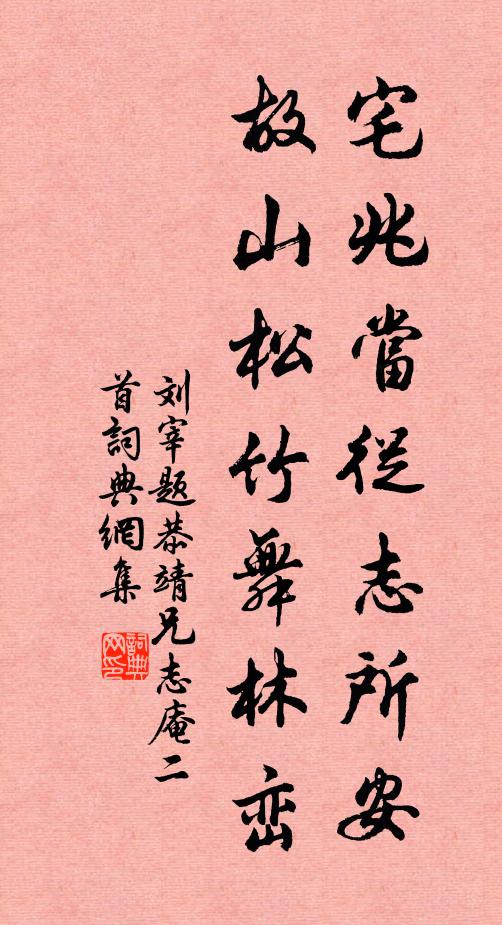 宅兆當從志所安
故山松竹舞林峦
刘宰题恭靖兄志庵二
首詞典網集
詞典网印